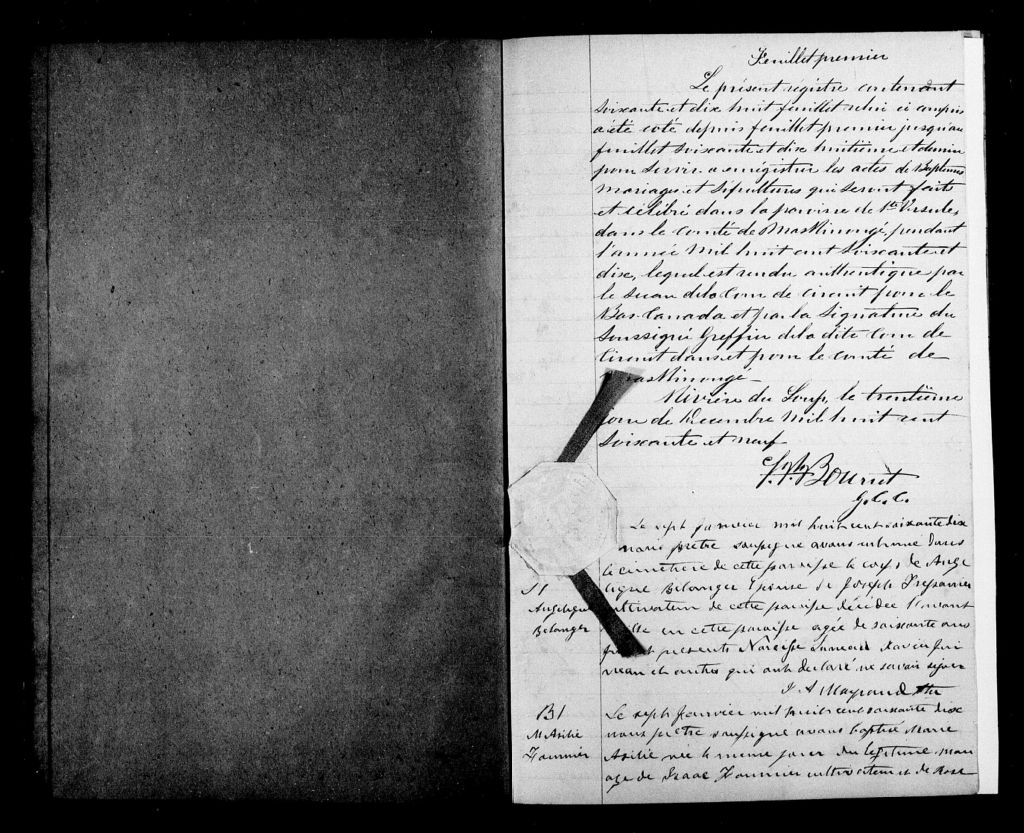 Feuillet premier
Le présent régistre contenant
soixante et dix huit feuillet celui ci compris
a été coté depuis feuillet premier jusqu'au
feuillet soixante et dix huitième et dernier
pour servir a enrégistrer les actes de Baptêmes
Mariages et Sépultures qui seront faits
et célébré dans la paroisse de Ste Ursule,
dans le comté de Maskinongé, pendant
l'année mil huit cent soixante et
dix, lequel est rendu authentique par
le sceau de la Cour de Circuit pour le
Bas-Canada et par la Signature du
Soussigné Greffier de la dite Cour de
Circuit dans et pour le comté de
Maskinongé
Rivière du Loup, le trentième
jour de Décembre mil huit cent
soixante et neuf
Bourret
G.C.C.
Le sept janvier mil huit cent soixante dix
nous prêtre soussigné avons inhumé dans
le cimetière de cette paroisse le corps de Angé
S1
lique Bélanger Épouse de Joseph
Angelique
cultivateur de cette paroisse décédée
Belanger
en cette paroisse agée de soixante ans
présents Narcisse Xavier
et autres qui ont déclaré ne savoir signer
J A Mayrand Ptre
B1
Le sept Janvier mil huit cent soixante dix
M Azilie
nous prêtre soussigné avons baptisé Marie
Fournier
Azilie née le même jour du légitime mari
age de Isaac Fournier cultivateur et de Rose